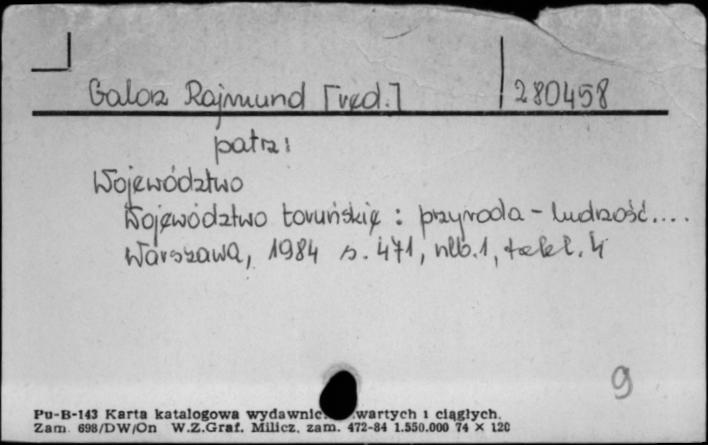 Galon Rajmund [red.] 280458
patrz:
Województwo
Województwo toruńskie : przyroda - ludność....
Warszawa, 1984 s. 471, nlb. 1, tabl. 4
9
Pu-B-143 Karta katalogowa wydawnic wartych i ciągłych.
Zam. 698/DW/On W.Z.Graf. Milicz, zam. 472-84 1.550.000 74 X 120